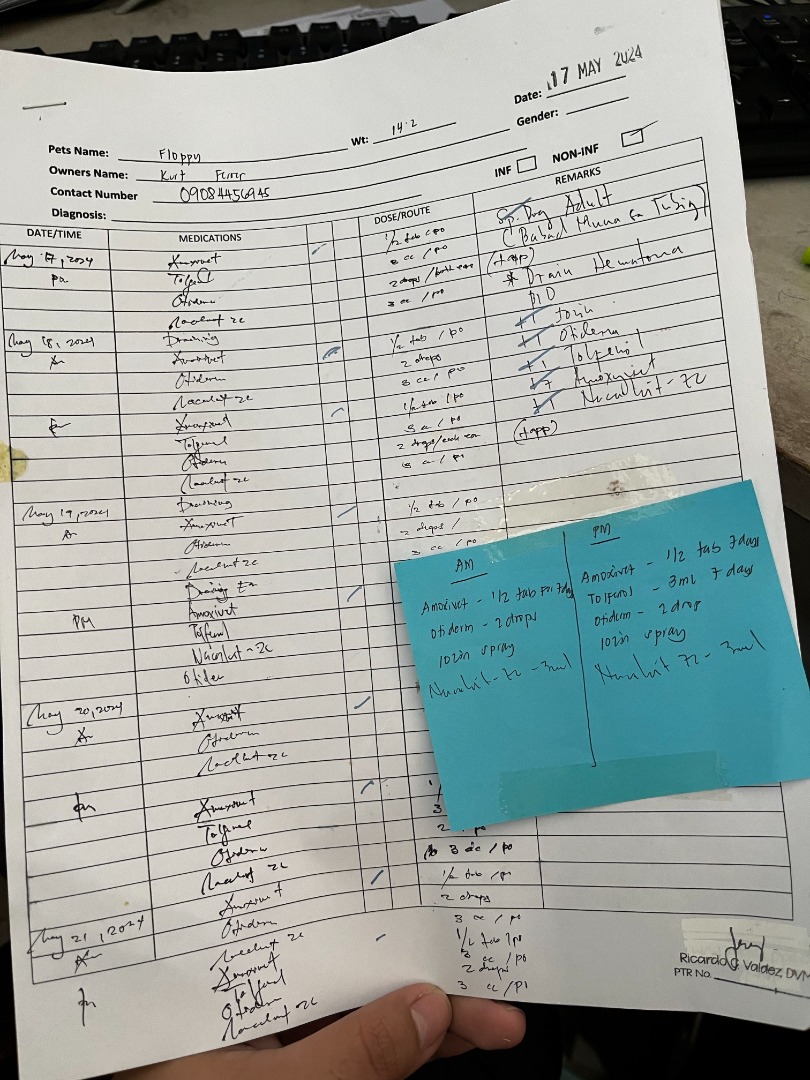 Date: 17 MAY 2024
Gender:
Pets Name: Floppy Wt: 14.2
Owners Name: Kurt
Contact Number 09084456945
INF NON-INF
Diagnosis:
DATE/TIME MEDICATIONS DOSE/ROUTE REMARKS
May 17, 2024 Amoxivet 1/2 tab / po Adult
pm Tolfenol 3 cc / po
Otiderm 2 drops / both ears * Drain Hematoma
Nacalvit zc 3 cc / po
May 18, 2024 Draining
Am Amoxivet 1/2 tab / po
Otiderm 2 drops +1 Otiderm
Nacalvit zc 3 cc / po +1 Tolfenol
pm Amoxivet 1/2 tab / po Amoxivet
Tolfenol 3 cc / po
Otiderm 2 drops/each ear
Nacalvit zc 3 cc / po
May 19, 2024 Draining
Am Amoxivet 1/2 tab / po
Otiderm 2 drops /
Nacalvit zc 3 cc / po
Draining
PM Amoxivet
Tolfenol
Nacalvit - zc
Otider
May 20, 2024 Amoxivet
Am Otiderm
Nacalvit zc
pm Amoxivet
Tolfenol 3
Otiderm
Nacalvit zc 3 cc / po
May 21, 2024 Amoxivet 1/2 tab / po
Am Otiderm 2 drops
Nacalvit zc 3 cc / po
pm Amoxivet 1/2 tab / po
Tolfenol 3 cc / po
Otiderm 2 drops
Nacalvit zc 3 cc / po
AM
Amoxivet - 1/2 tab for 7days
Otiderm - 2 drops
10zin spray
- 3ml
PM
Amoxivet - 1/2 tab 7days
Tolfenol - 3ml 7 days
Otiderm - 2 drop
10zin spray
- 3ml
Ricardo G. Valdez DVM
PTR No.